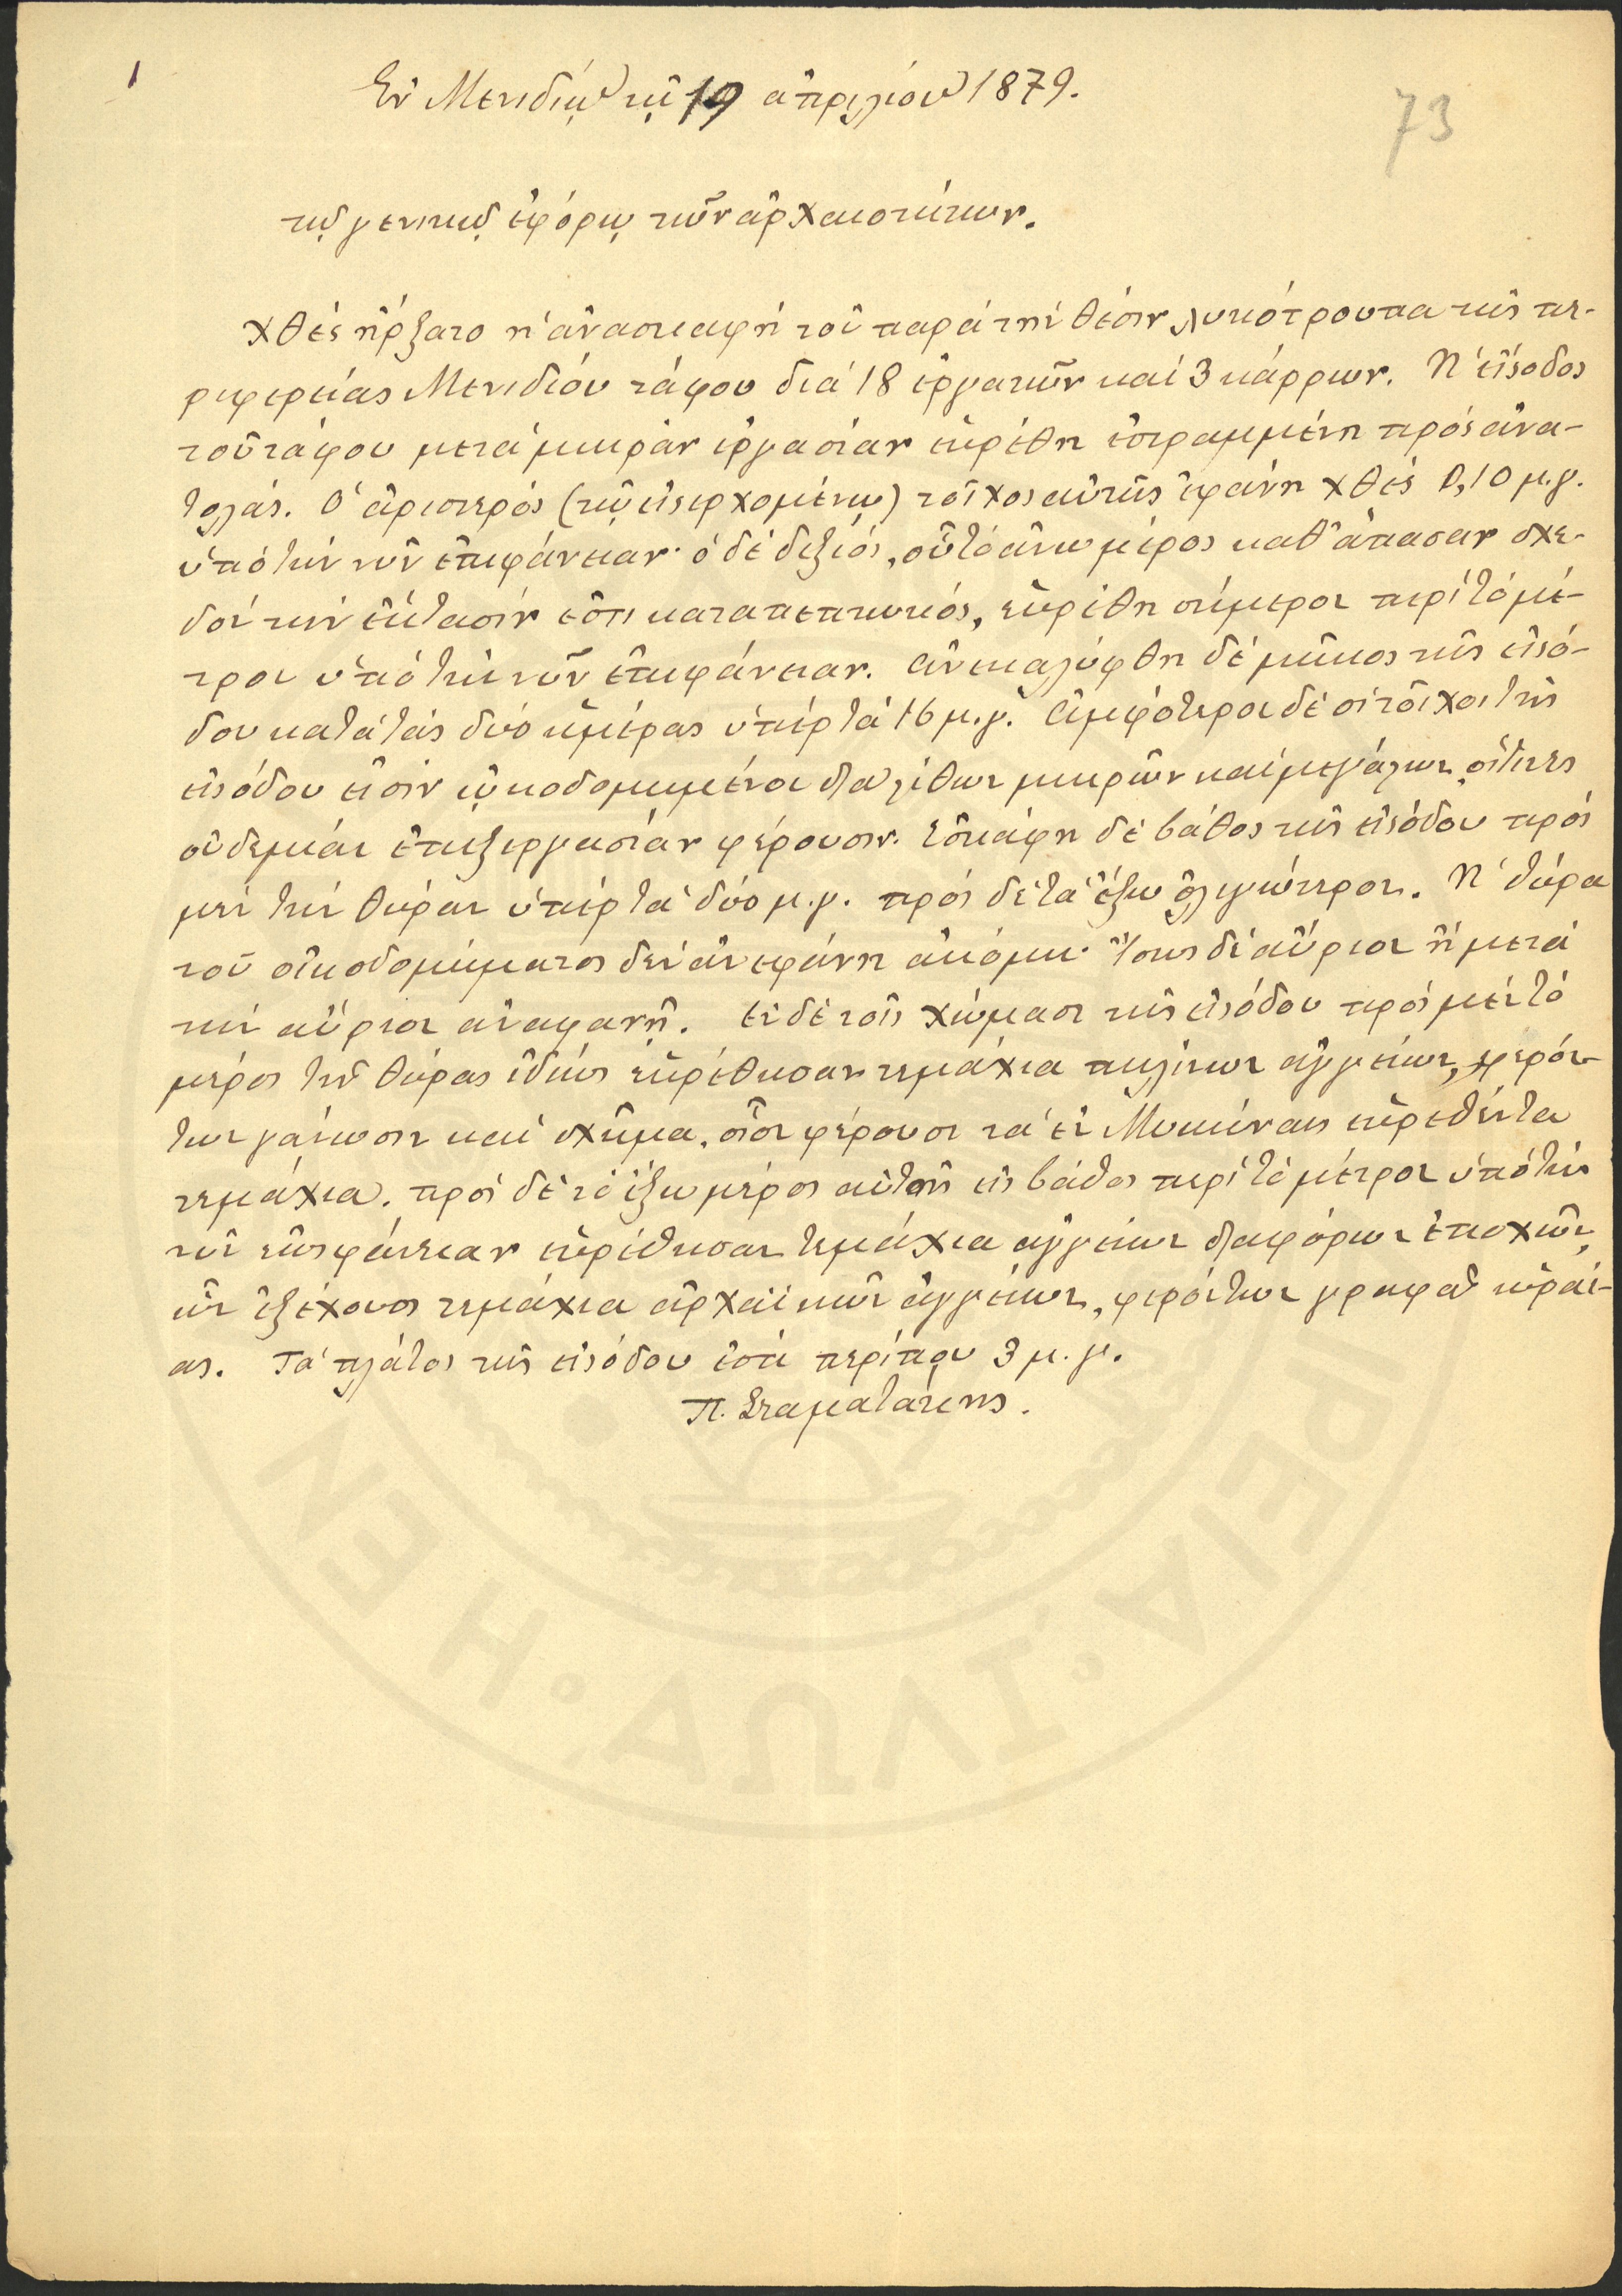 1
73
Ἐν Μενιδίῳ τῇ 19 ἀπριλίου 1879.
τῷ γενικῷ ἐφόρῳ τῶν ἀρχαιοτήτων.
Χθές ἤρξατο ἡ ἀνασκαφή τοῦ παρά τήν θέσιν Λυκότρουπα τῆς πε-
ριφερείας Μενιδίου τάφου διά 18 ἐργατῶν καί 3 κάρρων. Ἡ εἴσοδος
τοῦ τάφου μετά μικράν ἐργασίαν εὑρέθη ἐστραμμένη πρός ἀνα-
τολάς. Ὁ ἀριστερός (τῷ εἰσερχομένῳ) τοῖχος αὐτῆς ἐφάνη χθές 0,10 μ.γ.
ὑπό τήν νῦν ἐπιφάνειαν· ὁ δέ δεξιός, οὗ τό ἄνω μέρος καθ' ἅπασαν σχε-
δόν τήν ἔκτασιν ἐστι καταπεπτωκός, εὑρέθη σήμερον περί τό μέ-
τρον ὑπό τήν νῦν ἐπιφάνειαν. Ἀνεκαλύφθη δέ μῆκος τῆς εἰσό-
δου κατά τάς δύο ἡμέρας ὑπέρ τά 16 μ.γ. Ἀμφότεροι δέ οἱ τοῖχοι τῆς
εἰσόδου εἰσίν ᾠκοδομημένοι διά λίθων μικρῶν καί μεγάλων, οἵτινες
οὐδεμίαν ἐπεξεργασίαν φέρουσιν. Ἐσκάφη δέ βάθος τῆς εἰσόδου πρός
μέν τήν θύραν ὑπέρ τά δύο μ.γ. πρός δέ τά ἔξω ὀλιγώτερον. Ἡ θύρα
τοῦ οἰκοδομήματος δέν ἀνεφάνη ἀκόμη· ἴσως δέ αὔριον ἤ μετά
τήν αὔριον ἀναφανῇ. Ἐν δέ τοῖς χώμασι τῆς εἰσόδου πρός μέν τό
μέρος τῆς θύρας ἰδίως εὑρέθησαν τεμάχια πηλίνων ἀγγείων, φερόν-
των γάνωσιν καί σχῆμα, οἷον φέρουσι τά ἐν Μυκήναις εὑρεθέντα
τεμάχια. πρός δέ τό ἔξω μέρος αὐτῆς εἰς βάθος περί τό μέτρον ὑπό τήν
νῦν ἐπιφάνειαν εὑρέθησαν τεμάχια ἀγγείων διαφόρων ἐποχῶν,
ὧν ἐξέχουσι τεμάχια ἀρχαϊκῶν ἀγγείων, φερόντων γραφάς ὡραί-
ας. Τό πλάτος τῆς εἰσόδου ἐστί περίπου 3 μ.γ.
Π. Σταματάκης.
ΝΕΗ·ΑΩΛΙ·ΑΙΕΙΡ